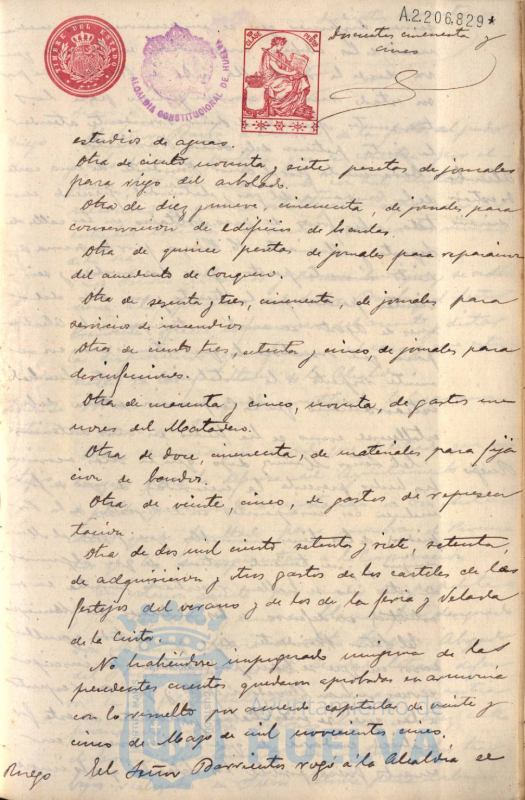 A.2.206.829*
Doscientos cincuenta y
cinco
TIMBRE DEL ESTADO
ALCALDIA CONSTITUCIONAL DE HUELVA
estudios de aguas.
Otra de ciento noventa y siete pesetas de jornales
para riego del arbolado.
Otra de diez y nueve, cincuenta, de jornales para
conservacion de edificios de
Otra de quince pesetas de jornales para reparacion
del acueducto de Conquero.
Otra de sesenta y tres, cincuenta, de jornales para
servicio de incendios
Otra de ciento tres, setenta y cinco, de jornales para
desinfecciones.
Otra de cuarenta y cinco, noventa, de gastos me
nores del Matadero.
Otra de doce, cincuenta, de materiales para fija
cion de bandos.
Otra de veinte, cinco, de gastos de represen
tacion.
Otra de dos mil ciento setenta y siete, setenta,
de adquisicion y otros gastos de los carteles de las
festejos del verano y de los de la feria y Velada
de la Cinta.
No habiéndose impugnado ninguna de las
precedentes cuentas quedaron aprobadas en armonia
con lo resuelto por acuerdo capitular de veinte y
cinco de Mayo de mil novecientos cinco.
Ruego El Señor Barrientos rogó a la Alcaldía se
HUELVA